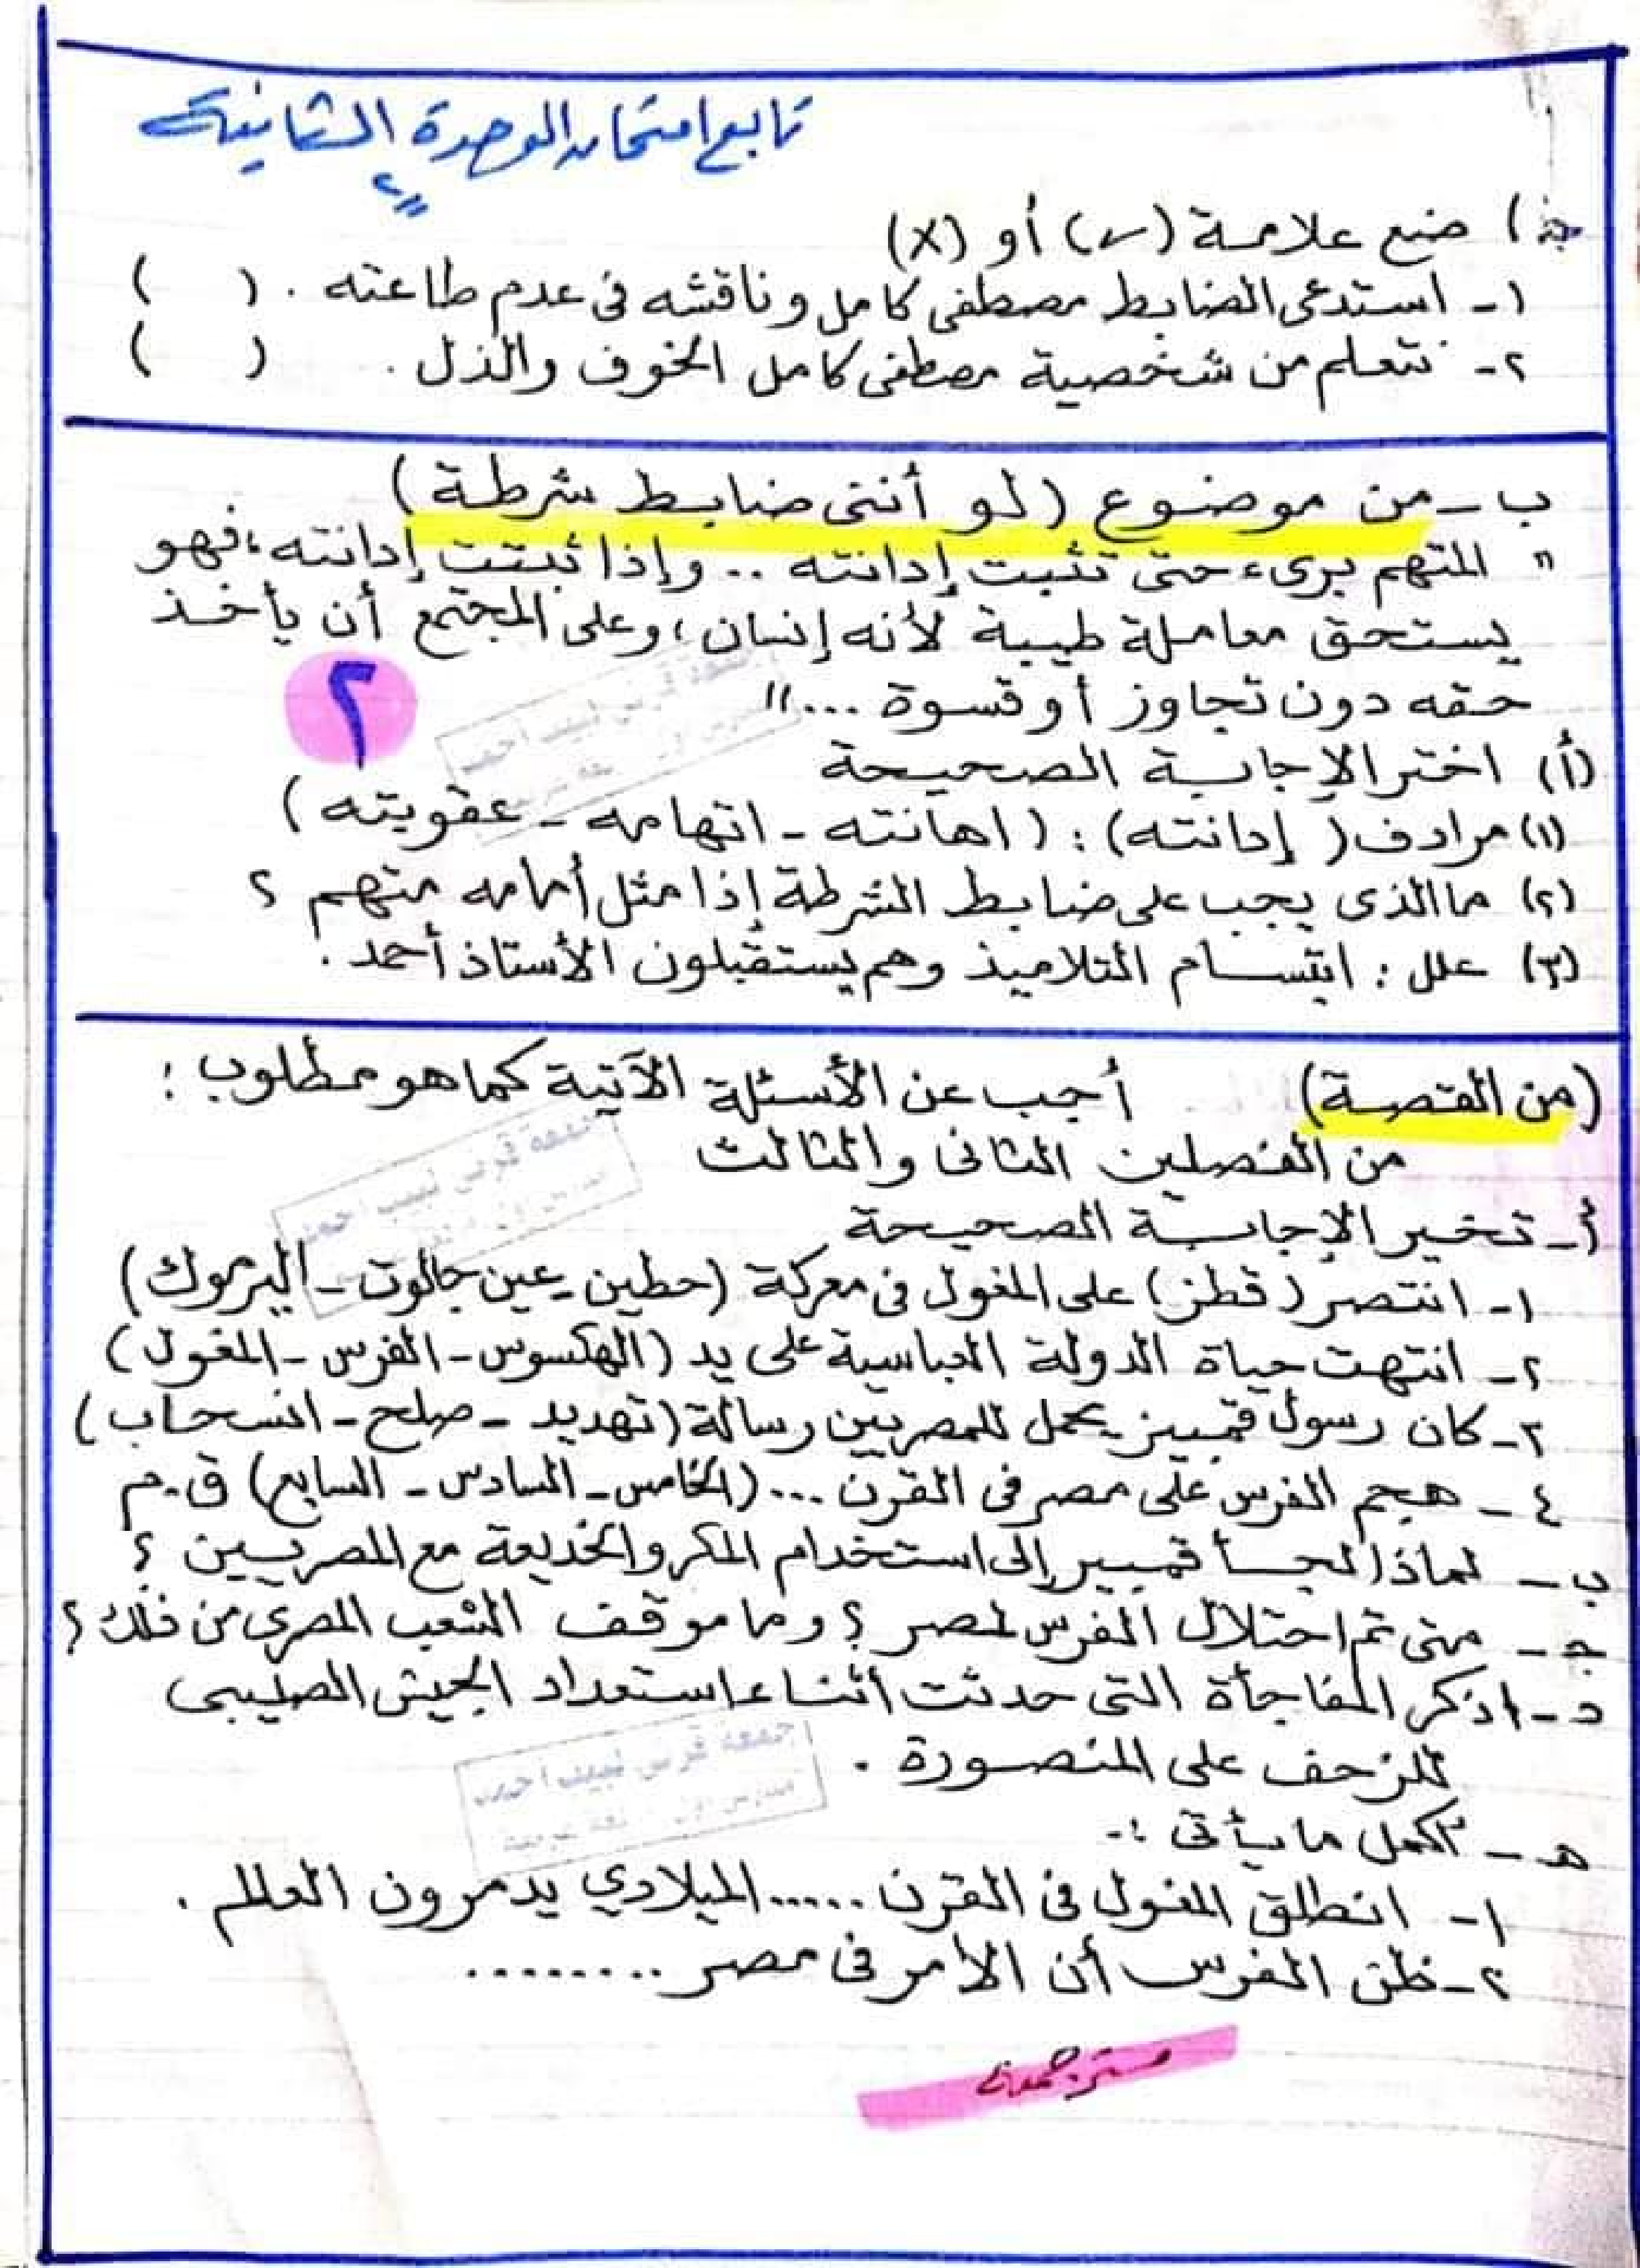 تابع امتحان الوحدة الثانية
جـ) ضع علامة (✓) أو (X)
١- استدعى الضابط مصطفى كامل وناقشه فى عدم طاعته . (    )
٢- نتعلم من شخصية مصطفى كامل الخوف والذل . (    )
ب - من موضوع (لو أننى ضابط شرطة)
" المتهم برىء حتى تثبت إدانته .. وإذا ثبتت إدانته ، فهو
يستحق معاملة طيبة لأنه إنسان ، وعلى المجتمع أن يأخذ
حقه دون تجاوز أو قسوة ... "
٢
(أ) اختر الإجابة الصحيحة
(١) مرادف ( إدانته ) : ( اهانته - اتهامه - عقوبته )
(٢) ما الذى يجب على ضابط الشرطة إذا مثل أمامه متهم ؟
(٣) علل : ابتسام التلاميذ وهم يستقبلون الأستاذ أحمد .
(من القصة) أجب عن الأسئلة الآتية كما هو مطلوب :
من الفصلين الثانى والثالث
أ - تخير الإجابة الصحيحة
١- انتصر ( قطز ) على المغول فى معركة (حطين - عين جالوت - اليرموك)
٢- انتهت حياة الدولة العباسية على يد (الهكسوس - الفرس - المغول)
٣- كان رسول قمبيز يحمل للمصريين رسالة (تهديد - صلح - انسحاب)
٤- هجم الفرس على مصر فى القرن ... (الخامس - السادس - السابع) ق.م
ب - لماذا لجأ قمبيز إلى استخدام المكر والخديعة مع المصريين ؟
جـ - متى تم احتلال الفرس لمصر ؟ وما موقف الشعب المصرى من ذلك ؟
د - اذكر المفاجأة التى حدثت أثناء استعداد الجيش الصليبى
للزحف على المنصورة .
هـ - أكمل ما يأتى :-
١- انطلق المغول فى القرن ..... الميلادي يدمرون العالم .
٢- ظن الفرس أن الأمر فى مصر ........
مستر جمعة
جمعة قرنى لبيب احمد